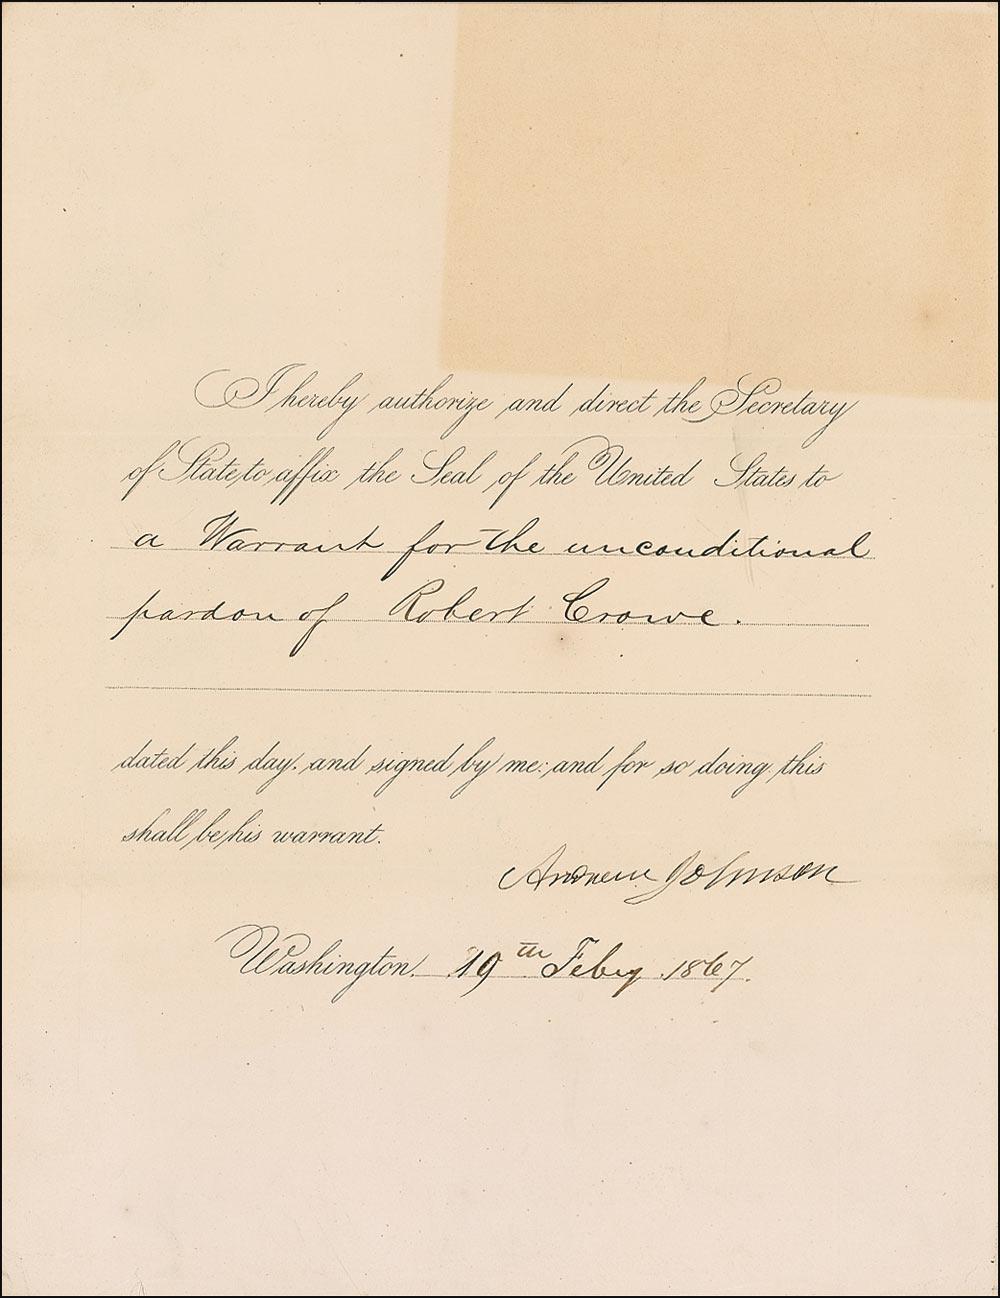 I hereby authorize and direct the Secretary
of State to affix the Seal of the United States to
a Warrant for the unconditional
pardon of Robert Crowe.
dated this day, and signed by me: and for so doing this
shall be his warrant.
Andrew Johnson
Washington. 19th Feby 1867.